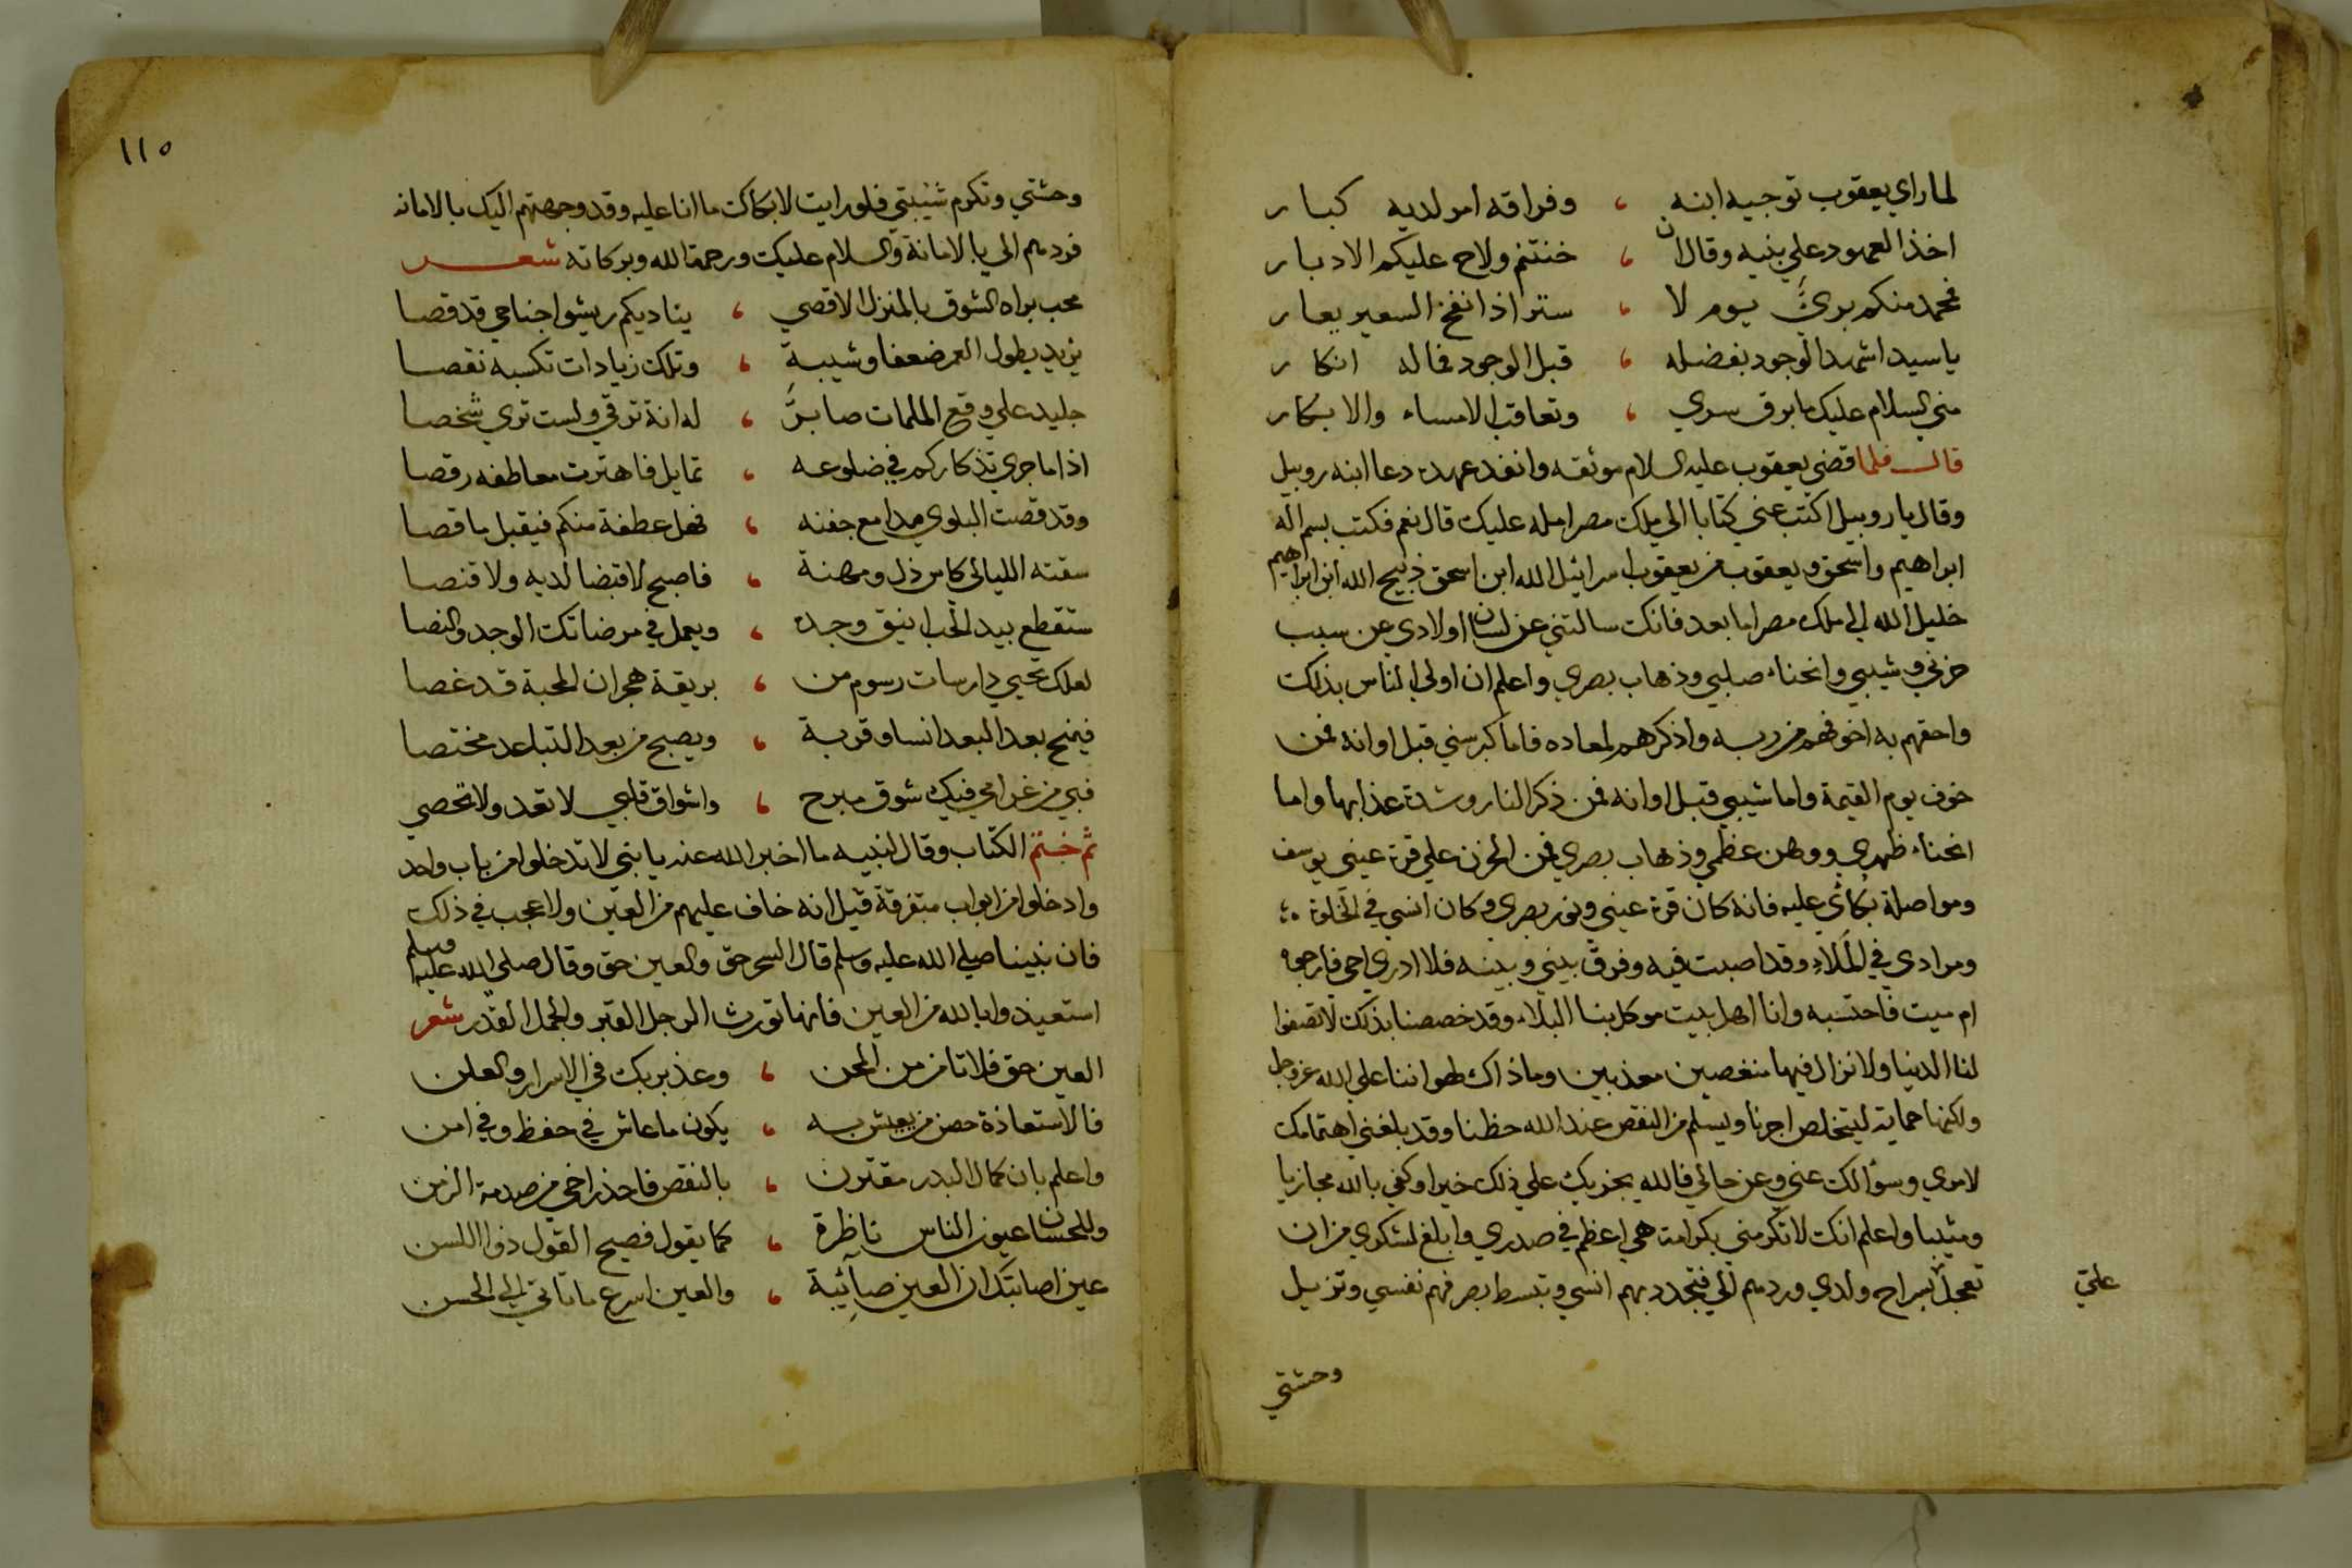 لما راي يعقوب توجيه ابنه ، وفراقه امر لديه كبار
اخذ العهود علي بنيه وقال ان ، خنتم ولاح عليكم الادبار
فمحمد منكم بريٌّ يوم لا ، ستر اذا نفخ السعير يعار
يا سيد اشهد الوجود بفضله ، قبل الوجود فما له انكار
مني السلام عليك ما برق سري ، وتعاقب الامساء والابكار
قال فلما قضي يعقوب عليه السلام موثقه وانفد عهده دعا ابنه روبيل
وقال يا روبيل اكتب عني كتابا الي ملك مصر امله عليك قال نعم فكتب بسم اله
ابراهيم واسحق ويعقوب من يعقوب اسرائيل الله ابن اسحق ذبيح الله ابن ابراهيم
خليل الله الي ملك مصر اما بعد فانك سالتني عن لسان اولادي عن سبب
حزني وشيبي وانحناء صلبي وذهاب بصري واعلم ان اولي الناس بذلك
واحقهم به اخوفهم من ربه واذكرهم لمعاده فاما كبر سني قبل اوانه فمن
خوف يوم القيمة واما شيبي قبل اوانه فمن ذكر النار وشدة عذابها واما
انحناء ظهري ووهن عظمي وذهاب بصري فمن الحزن علي قرة عيني يوسف
ومواصلة بكائي عليه فانه كان قرة عيني ونور بصري وكان انسي في الخلوة
ومرادي في الملاءِ وقد اصبت فيه وفرق بيني وبينه فلا ادري احي فارجوه
ام ميت فاحتسبه وانا اهل بيت موكل بنا البلاء وقد خصصنا بذلك لا تصفوا
لنا الدنيا ولا نزال فيها منغصين معذبين وما ذاك لهواننا علي الله عز وجل
ولكنها حماية ليتخلص اجرنا ويسلم من النقص عند الله حظنا وقد بلغني اهتمامك
لامري وسؤالك عني وعن حالي فالله يجزيك علي ذلك خيرا وكفي بالله مجازيا
ومثيبا واعلم انك لا تكرمني بكرامة هي اعظم في صدري وابلغ لشكري من ان
تعجل بسراح ولدي وردهم الي فتجدد بهم انسي وتبسط بصرفهم نفسي وتزيل
عليّ
وحشتي
١١٥
وحشتي وتكرم شيبتي فلو رايت لابكاك ما انا عليه وقد وجهتهم اليك بالامانه
فردهم الي بالامانة والسلام عليك ورحمة الله وبركاته شعر
محب براه الشوق بالمنزل الاقصي ، يناديكم ريشوا جناحي قد قصا
يزيد بطول العمر ضعفا وشيبة ، وتلك زيادات تكسبه نقصا
جليد علي وقع الملمات صابرٌ ، له انة ترقي ولست تري شخصا
اذا ما جري تذكاركم في ضلوعه ، تمايل فاهتزت معاطفه رقصا
وقد قصت البلوي مدامع جفنه ، فهل عطفة منكم فيقبل ما قصا
سقته الليالي كاس ذل ومهنة ، فاصبح لا قبضا لديه ولا قنصا
ستقطع بيد الحب اينق وجده ، ويعمل في مرضاتك الوجد والنصا
لعلك تحيي دارسات رسوم من ، بريقة هجران المحبة قد غصا
فيمنح بعد البعد انسا وقربة ، ويصبح من بعد التباعد مختصا
فبي من غرامي فيك شوق مبرح ، واشواق قلبي لا تعد ولا تحصي
ثم ختم الكتاب وقال لبنيه ما اخبر الله عنه يا بني لا تدخلوا من باب واحد
وادخلوا من ابواب متفرقة قيل انه خاف عليهم من العين ولا عجب في ذلك
فان نبينا صلي الله عليه وسلم قال السحر حق والعين حق وقال صلي الله عليه وسلم
استعيذوا بالله من العين فانها تورث الرجل القبر والجمل القدر شعر
العين حق فلا تامن من المحن ، وعذ بربك في الاسرار والعلن
فالاستعاذة حصن من يعيش به ، يكون ما عاش في حفظ وفي امن
واعلم بان كمال البدر مقترن ، بالنقص فاحذر اخي من صدمة الزمن
وللحسان عيون الناس ناظرة ، كما يقول فصيح القول ذوا اللسن
عين اصابتك ان العين صآئبة ، والعين اسرع ما تاتي الي الحسن